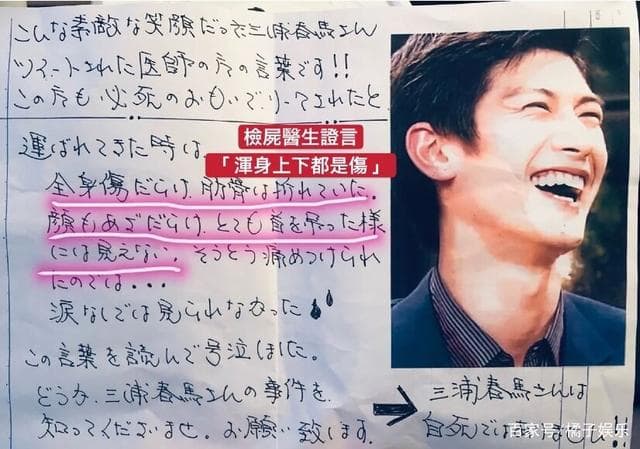 こんな素敵な笑顔だった三浦春馬さん
ツイートされた医師の方の言葉です!!
この方も必死のおもいでリークされたと
檢屍醫生證言
「渾身上下都是傷」
運ばれてきた時は
全身傷だらけ、肋骨は折れていた。
顔もあざだらけ、とても首を吊った様
には見えない。そうとう痛めつけられ
たのでは...
涙なしでは見られなかった
この言葉を読んで号泣しました。
どうか、三浦春馬さんの事件を
知ってくださいませ。お願い致します。
→ 三浦春馬さんは
自死では
!!
百家号·橘子娱乐